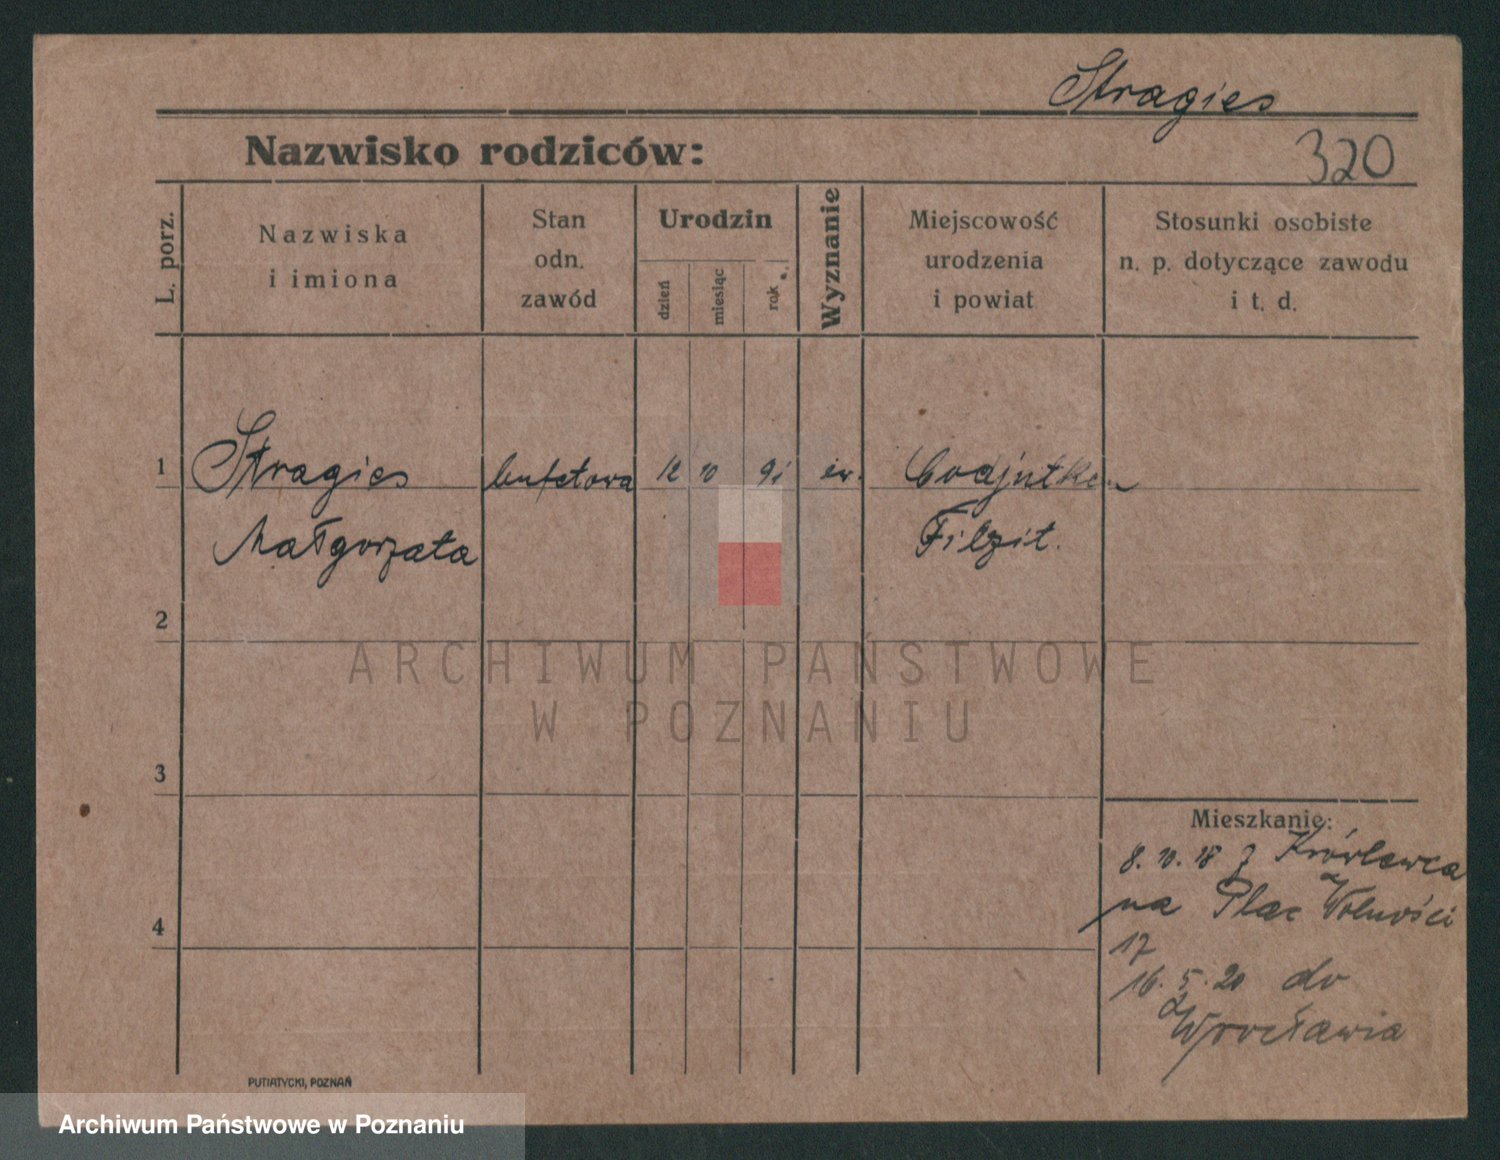 Stragies
Nazwisko rodziców:
320
L. porz.
Nazwiska
i imiona
Stan
odn.
zawód
Urodzin
dzień
miesiąc
rok
Wyznanie
Miejscowość
urodzenia
i powiat
Stosunki osobiste
n. p. dotyczące zawodu
i t. d.
1 Stragies bufetowa 12 10 91 ew. Codjutken
Małgorzata Filzit.
2
ARCHIWUM PAŃSTWOWE
W POZNANIU
3
Mieszkanie:
8. 10. 18 z Królewca
na Plac Wolności
4
17
16. 5. 20 do
Wrocławia
PUTIATYCKI, POZNAŃ
Archiwum Państwowe w Poznaniu